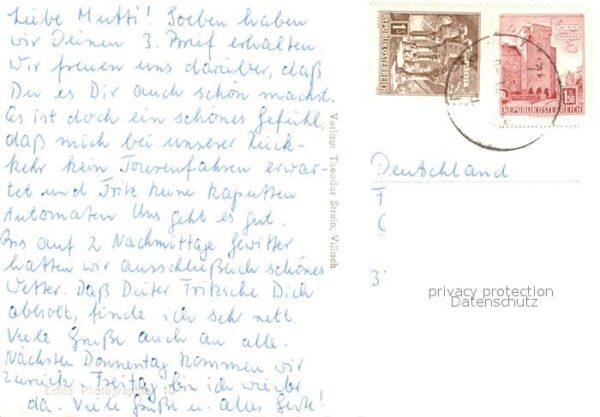 Liebe Mutti! Soeben haben
wir Deinen 3. Brief erhalten.
Wir freuen uns darüber, daß
Du es Dir auch schön machst.
Es ist doch ein schönes Gefühl,
daß mich bei unserer Rück-
kehr kein Tourenfahren erwar-
tet und Fritz keine kaputten
Automaten. Uns geht es gut.
Bis auf 2 Nachmittage Gewitter
hatten wir ausschließlich schönes
Wetter. Daß Dieter Fritzsche Dich
abholt, finde ich sehr nett.
Viele Grüße auch an alle.
Nächsten Donnerstag kommen wir
zurück. Freitag bin ich wieder
da. Viele Grüße u. alles Gute!
Verlag: Theodor Stein, Villach
1S
REPUBLIK ÖSTERREICH
1.50
REPUBLIK ÖSTERREICH
Deutschland
F
C
3
privacy protection
Datenschutz